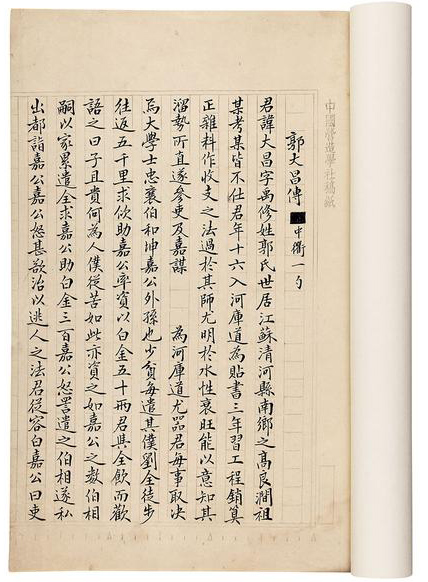 中國營造學社稿紙
郭大昌傳 中衢一勺
君諱大昌字禹修姓郭氏世居江蘇清河縣南鄉之高良澗祖
某考某皆不仕君年十六入河庫道為貼書三年習工程銷算
正雜料作收支之法過於其師尤明於水性衰旺能以意知其
溜勢所直遂參吏及嘉謀 為河庫道尤器君每事取決
焉大學士忠襄伯和珅嘉公外孫也少貧每遣其僕劉全徒步
往返五千里求佽助嘉公率資以白金五十兩君與全飲而歡
語之曰子且貴何為人僕從苦如此亦資之如嘉公之數伯相
嗣以家累遣全求嘉公助白金三百嘉公怒詈遣之伯相遂私
出都詣嘉公嘉公怒甚欲治以逃人之法君從容白嘉公曰吏